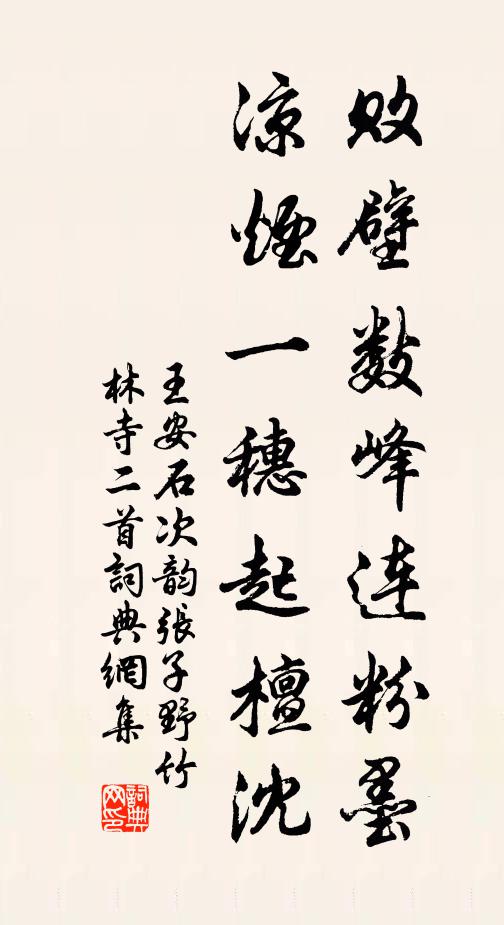 败壁数峰连粉墨
凉烟一穗起檀沈
王安石次韵張子野竹
林寺二首詞典網集
詞典
网印